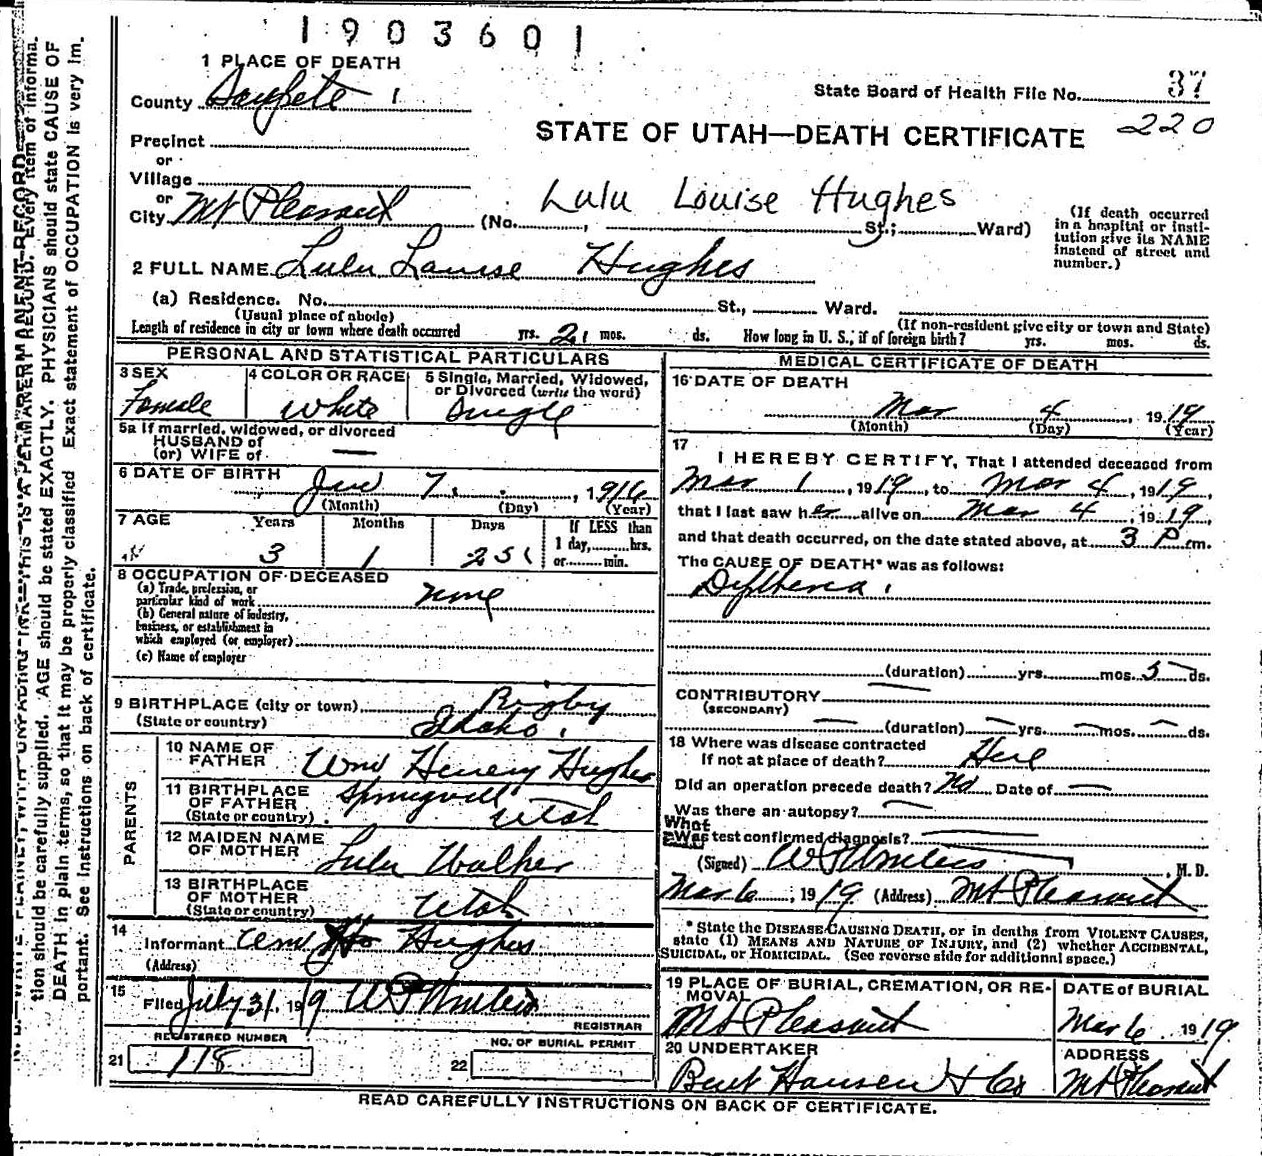 1903601
1 PLACE OF DEATH
County Sanpete 1
State Board of Health File No. 37
220
STATE OF UTAH—DEATH CERTIFICATE
Precinct
or
Village
or
City Mt Pleasant (No. , St.; Ward)
Lulu Louise Hughes
(If death occurred
in a hospital or insti-
tution give its NAME
instead of street and
number.)
2 FULL NAME Lulu Louise Hughes
(a) Residence. No. St., Ward.
(Usual place of abode) (If non-resident give city or town and State)
Length of residence in city or town where death occurred yrs. 2 mos. ds. How long in U. S., if of foreign birth? yrs. mos. ds.
PERSONAL AND STATISTICAL PARTICULARS
3 SEX 4 COLOR OR RACE 5 Single, Married, Widowed,
or Divorced (write the word)
Female White Single
5a If married, widowed, or divorced
HUSBAND of
(or) WIFE of —
6 DATE OF BIRTH Jan 7, 1916
(Month) (Day) (Year)
7 AGE Years Months Days If LESS than
1 day, hrs.
or min.
3 1 25
8 OCCUPATION OF DECEASED
(a) Trade, profession, or
particular kind of work none
(b) General nature of industry,
business, or establishment in
which employed (or employer)
(c) Name of employer
9 BIRTHPLACE (city or town) Rigby
(State or country) Idaho.
PARENTS
10 NAME OF
FATHER Wm Henery Hughes
11 BIRTHPLACE
OF FATHER Springvill
(State or country) Utah
12 MAIDEN NAME
OF MOTHER Lulu Walker
13 BIRTHPLACE
OF MOTHER
(State or country) Utah
14
Informant Wm Hughes
(Address)
15
Filed July 31, 1919
REGISTRAR
REGISTERED NUMBER
21 118
NO. OF BURIAL PERMIT
22
MEDICAL CERTIFICATE OF DEATH
16 DATE OF DEATH
Mar 4, 1919
(Month) (Day) (Year)
17
I HEREBY CERTIFY, That I attended deceased from
Mar 1, 1919, to Mar 4, 1919,
that I last saw her alive on Mar 4, 1919,
and that death occurred, on the date stated above, at 3 P m.
The CAUSE OF DEATH* was as follows:
Diftheria.
(duration) yrs. mos. 5 ds.
CONTRIBUTORY
(SECONDARY)
— (duration) — yrs. — mos. — ds.
18 Where was disease contracted
If not at place of death? Here
Did an operation precede death? No Date of —
Was there an autopsy? —
What
Was test confirmed diagnosis? —
(Signed) M. D.
Mar 6, 1919 (Address) Mt Pleasant
* State the DISEASE CAUSING DEATH, or in deaths from VIOLENT CAUSES,
state (1) MEANS AND NATURE OF INJURY, and (2) whether ACCIDENTAL,
SUICIDAL, or HOMICIDAL. (See reverse side for additional space.)
19 PLACE OF BURIAL, CREMATION, OR RE-
MOVAL
Mt Pleasant
DATE of BURIAL
Mar 6 1919
20 UNDERTAKER
Bent Hansen & Co
ADDRESS
Mt Pleasant
READ CAREFULLY INSTRUCTIONS ON BACK OF CERTIFICATE.
tion should be carefully supplied. AGE should be stated EXACTLY. PHYSICIANS should state CAUSE OF
DEATH in plain terms, so that it may be properly classified. Exact statement of OCCUPATION is very im-
portant. See instructions on back of certificate.